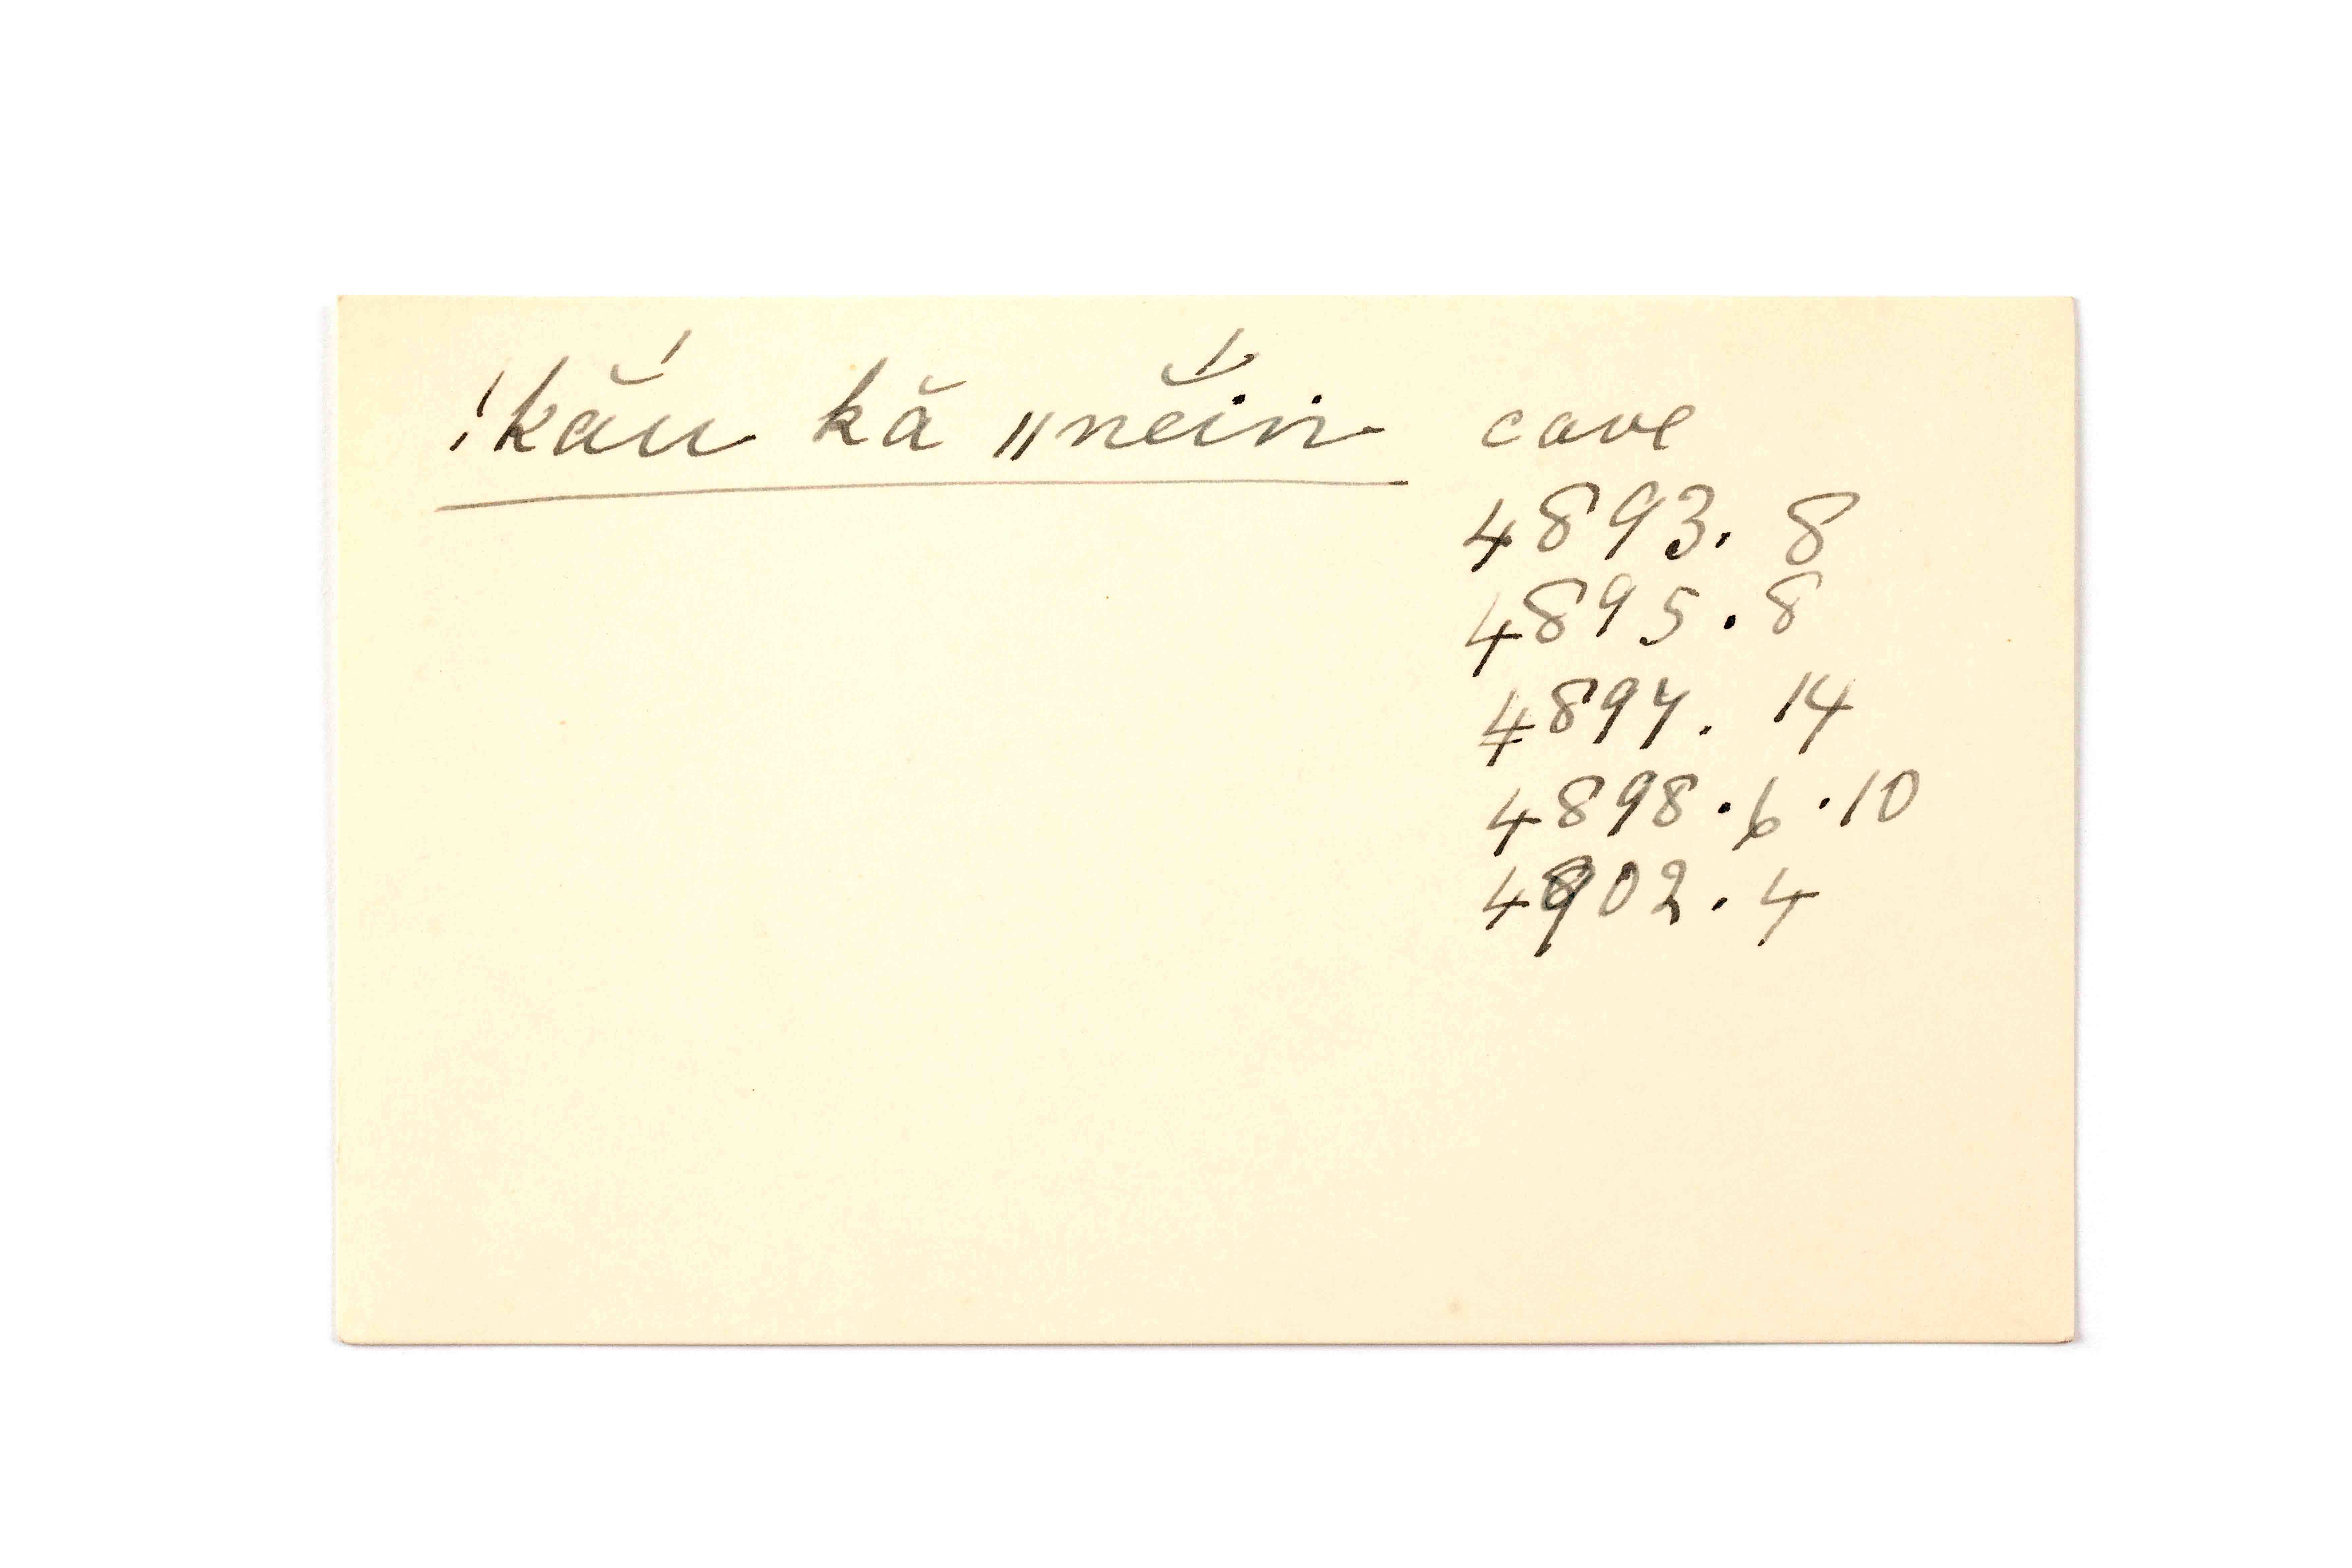 !kắu kă ǁnĕ́in cave
4893. 8
4895. 8
4897. 14
4898. 6. 10
4902. 4